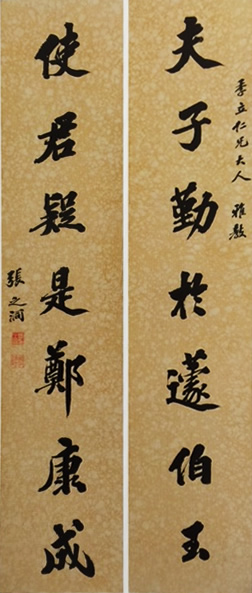 夫子勤於蘧伯玉
季立仁兄大人 雅教
使君疑是鄭康成
張之洞